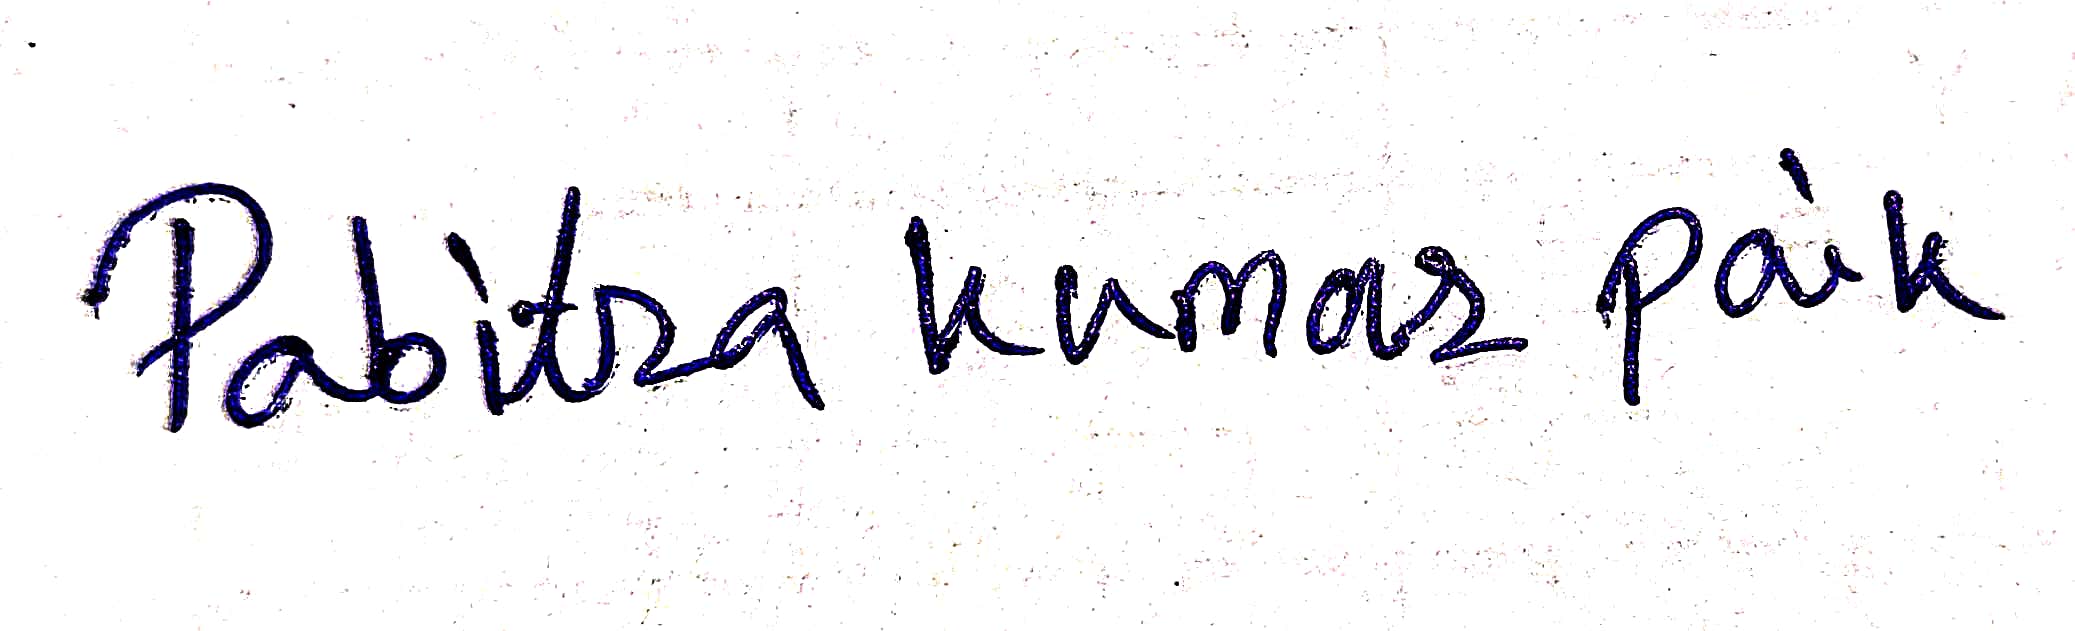 Pabitra kumar paik